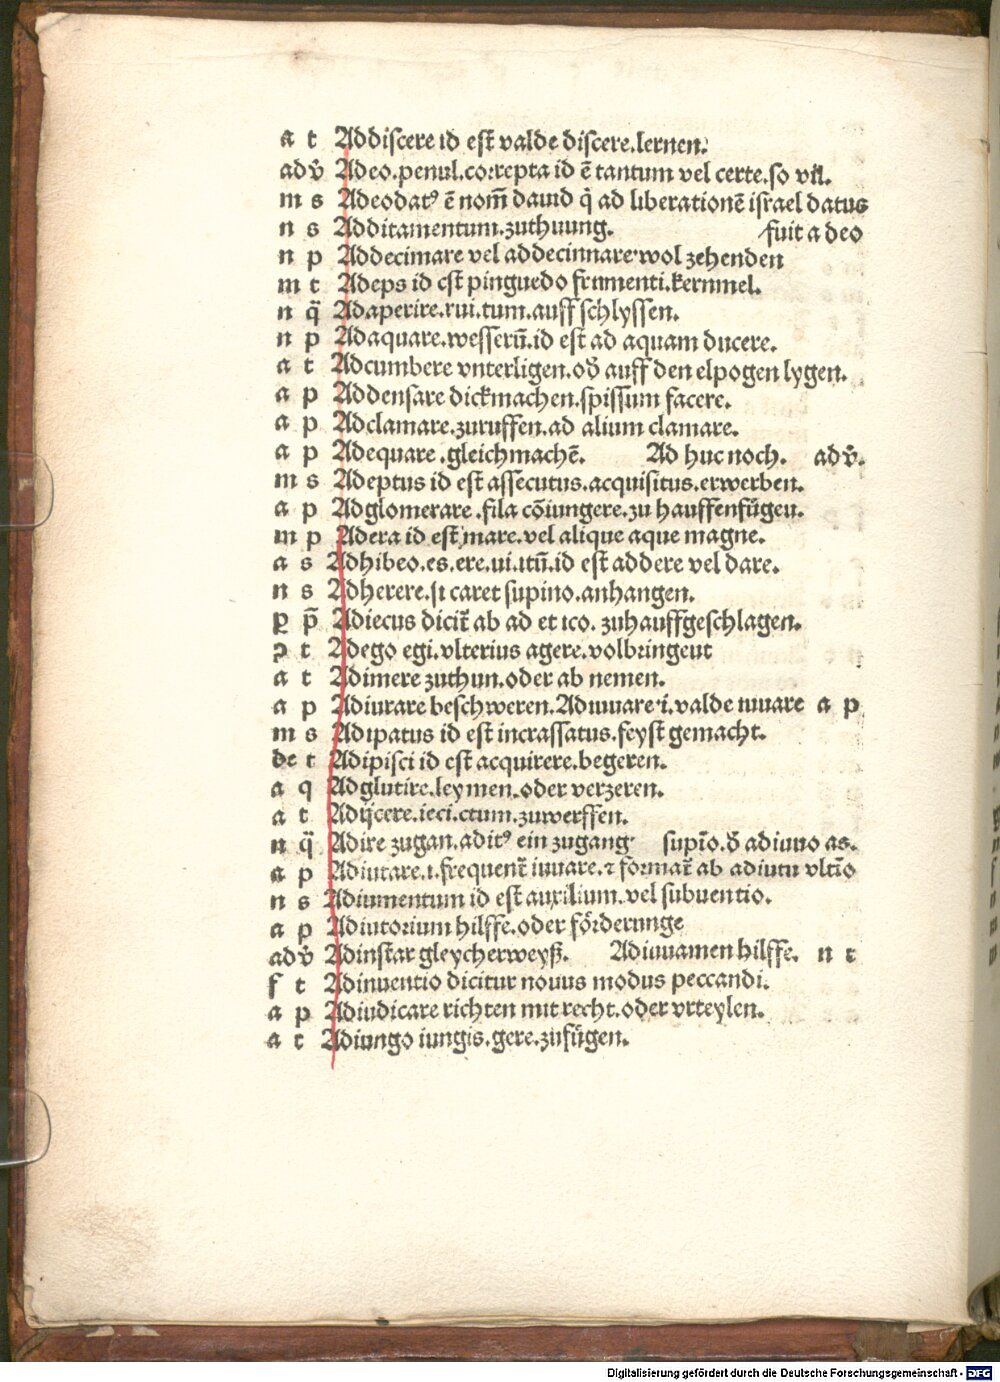 a t Addiscere id est valde discere.lernen.
adv̄ Adeo.penul.correpta id ē tantum vel certe.so vil.
m s Adeodatꝰ ē nom̄ dauid q̇ ad liberationē israel datus
n s Additamentum.zuthuung. fuit a deo
n p Addecimare vel addecinnare wol zehenden
m t Adeps id est pinguedo frumenti.kernmel.
n q̈ Adaperire.rui.tum.auff schlyssen.
n p Adaquare.wesserū.id est ad aquam ducere.
a t Adcumbere vnterligen.od̓ auff den elpogen lygen.
a p Addensare dickmachen.spissum facere.
a p Adclamare.zuruffen.ad alium clamare.
a p Adequare.gleichmachē. Ad huc noch. adv̄.
m s Adeptus id est assecutus.acquisitus.erwerben.
a p Adglomerare.fila cōiungere.zu hauffenfügen.
m p Adera id est mare.vel alique aque magne.
a s Adhibeo.es.ere.ui.itū.id est addere vel dare.
n s Adherere.si caret supino.anhangen.
ꝑ p̄ Adiecus dicit̄ ab ad et ico. zuhauffgeschlagen.
ꝯ t Adego egi.vlterius agere.volbringeut
a t Adimere zuthun.oder ab nemen.
a p Adiurare beschweren.Adiuuare.i.valde iuuare a p
m s Adipatus id est incrassatus.feyst gemacht.
de t Adipisci id est acquirere.begeren.
a q Adglutire.leymen.oder verzeren.
a t Adijcere.ieci.ctum.zuwerffen.
n q̈ Adire zugan.aditꝰ ein zugang supīo.d̓ adiuuo as.
a p Adiutare.i.frequent̄ iuuare.⁊ format̄ ab adiutu vltīo
n s Adiumentum id est auxilium.vel subuentio.
a p Adiutorium hilffe.oder förderunge
adv̄ Adinstar gleycherweyß. Adiuuamen hilffe. n t
f t Adinuentio dicitur nouus modus peccandi.
a p Adiudicare richten mit recht.oder vrteylen.
a t Adiungo iungis.gere.zufügen.
Digitalisierung gefördert durch die Deutsche Forschungsgemeinschaft - DFG